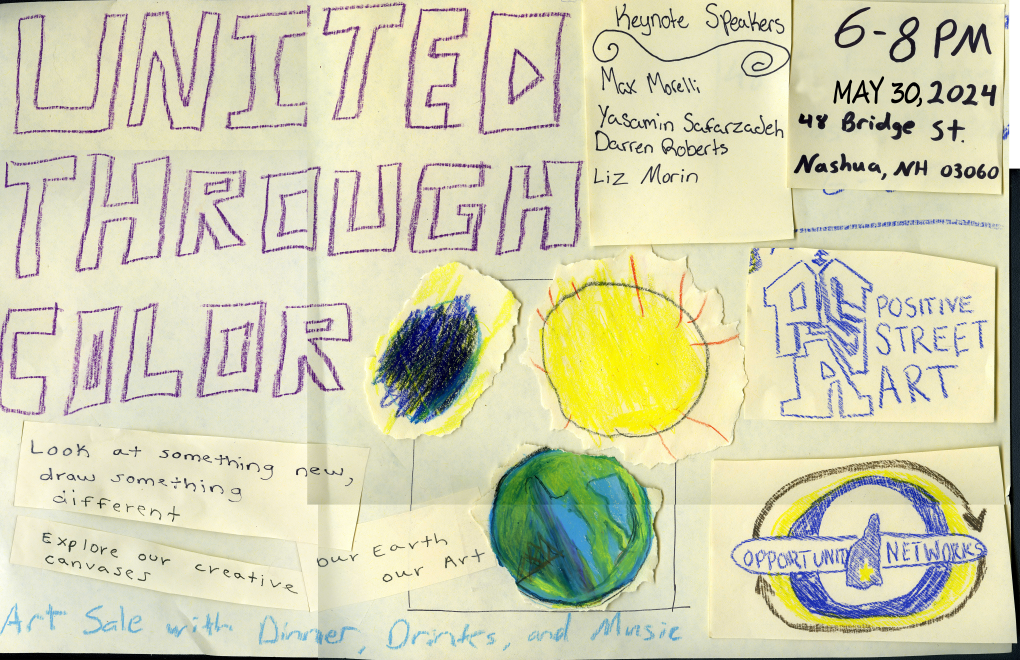 UNITED
THROUGH
COLOR
Keynote Speakers
Max Morelli
Yasamin Safarzadeh
Darren Roberts
Liz Morin
6-8 PM
MAY 30, 2024
48 Bridge St.
Nashua, NH 03060
POSITIVE
STREET
ART
Look at something new,
draw something
different
Explore our creative
canvases
our Earth
our Art
OPPORTUNITY NETWORKS
Art Sale with Dinner, Drinks, and Music